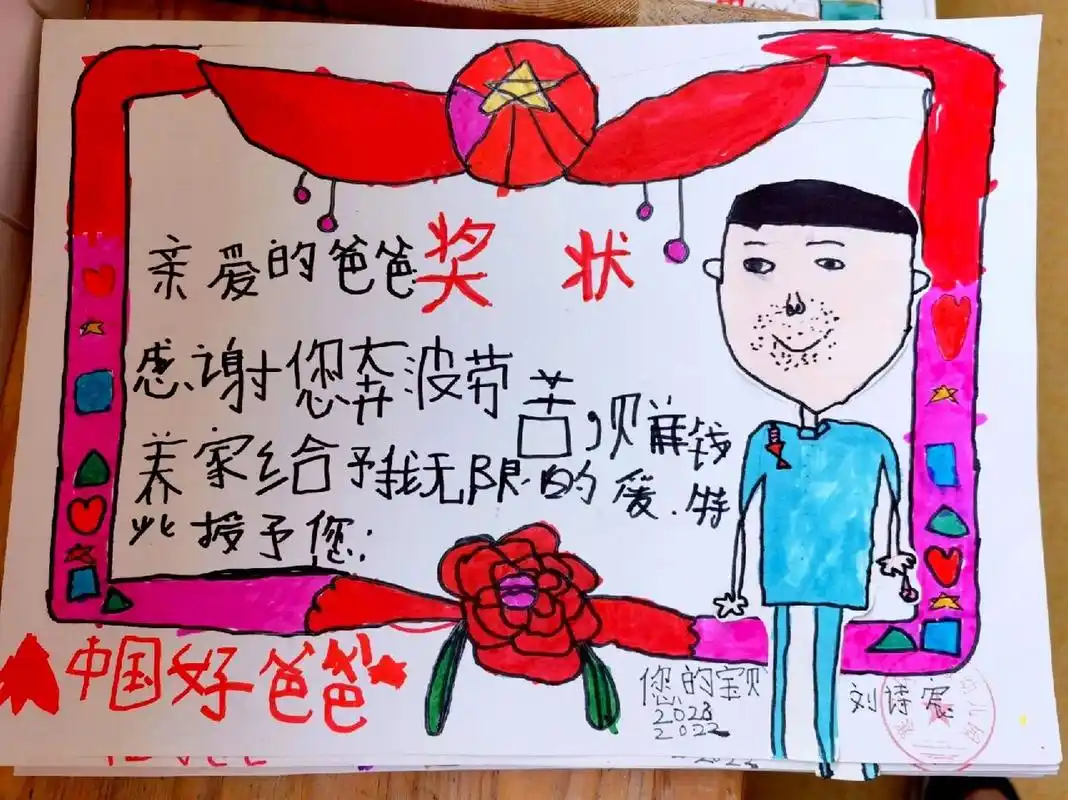 奖 状
亲爱的爸爸
感谢您奔波劳
苦,赚钱
养家给予我无限的爱.特
此授予您:
中国好爸爸
您的宝贝
刘诗宸
2023
2022